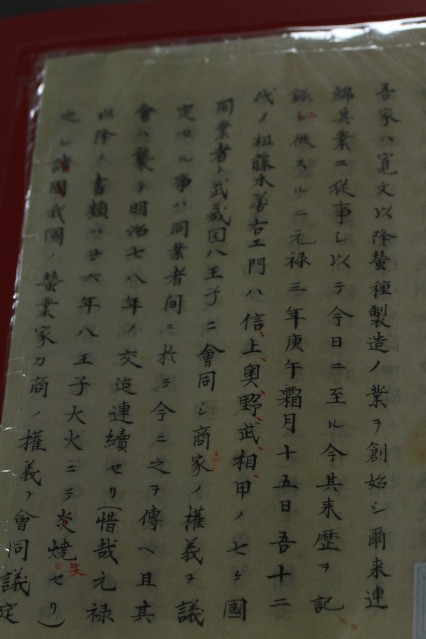 吾家ハ寛文以降蚕種製造ノ業ヲ創始シ爾来連
綿其業ニ従事シ以テ今日ニ至ル今其来歴ヲ記
録ニ徴スルニ元禄三年庚午霜月十五日吾十二
代ノ祖藤本善右エ門ハ信、上、奥、野、武、相、甲ノ七ヶ國
同業者ト武蔵国八王子ニ會同シ商家ノ権義ヲ議
定セル事ハ同業者間ニ於テ今ニ之ヲ傳ヘ且其
會ハ襲テ明治七八年ノ交迄連續セリ(惜哉元禄
以降ノ書類ハ廿六年八王子大火ニテ炎燒セリ)
之レ諸國我國ノ蚕業家カ商ノ権義ヲ會同議定
失